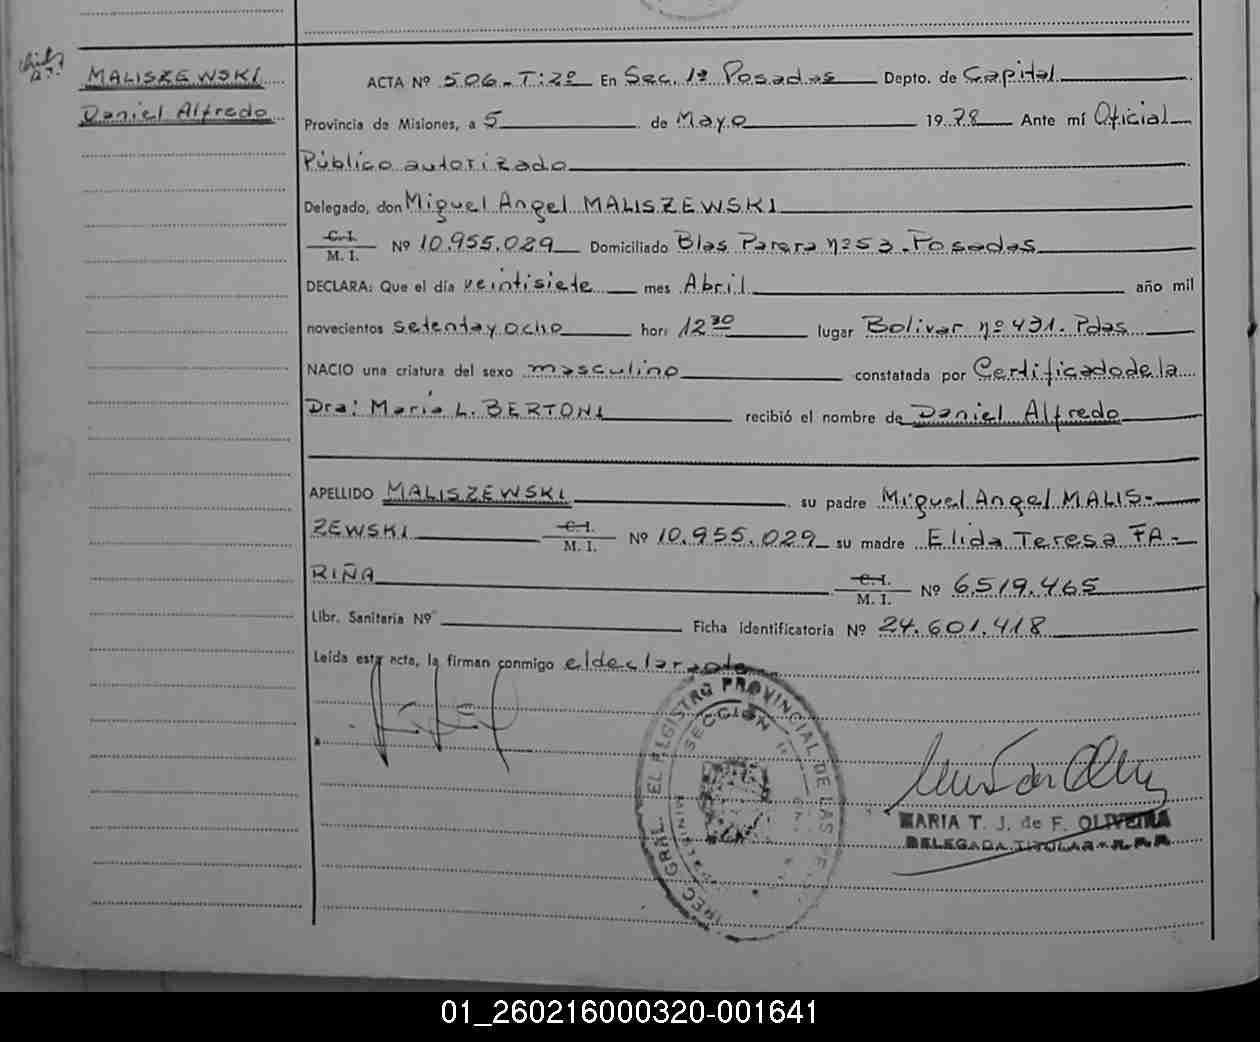 MALISZEWSKI
Daniel Alfredo
ACTA Nº 506-T:2º En Sec. 1º Posadas Depto. de Capital
Provincia de Misiones, a 5 de Mayo 1978 Ante mí Oficial
Público autorizado
Delegado, don Miguel Angel MALISZEWSKI
C.I.
M. I. Nº 10.955.029 Domiciliado Blas Parera nº 53-Posadas
DECLARA: Que el día veintisiete mes Abril año mil
novecientos setenta y ocho hora 12 30 lugar Bolivar nº 431. Pdas
NACIO una criatura del sexo masculino constatada por Certificado de la
Dra: María L. BERTONI recibió el nombre de Daniel Alfredo
APELLIDO MALISZEWSKI su padre Miguel Angel MALIS-
ZEWSKI C.I. M. I. Nº 10.955.029 su madre Elida Teresa FA-
RIÑA C.I. M. I. Nº 6.519.465
Libr. Sanitaria Nº Ficha identificatoria Nº 24.601.418
Leída esta acta, la firman conmigo el declarante
EL REGISTRO PROVINCIAL DE LAS PE
SECCION
GRAL.
MARIA T. J. de F. OLIVEIRA
DELEGADA TITULAR
01_260216000320-001641